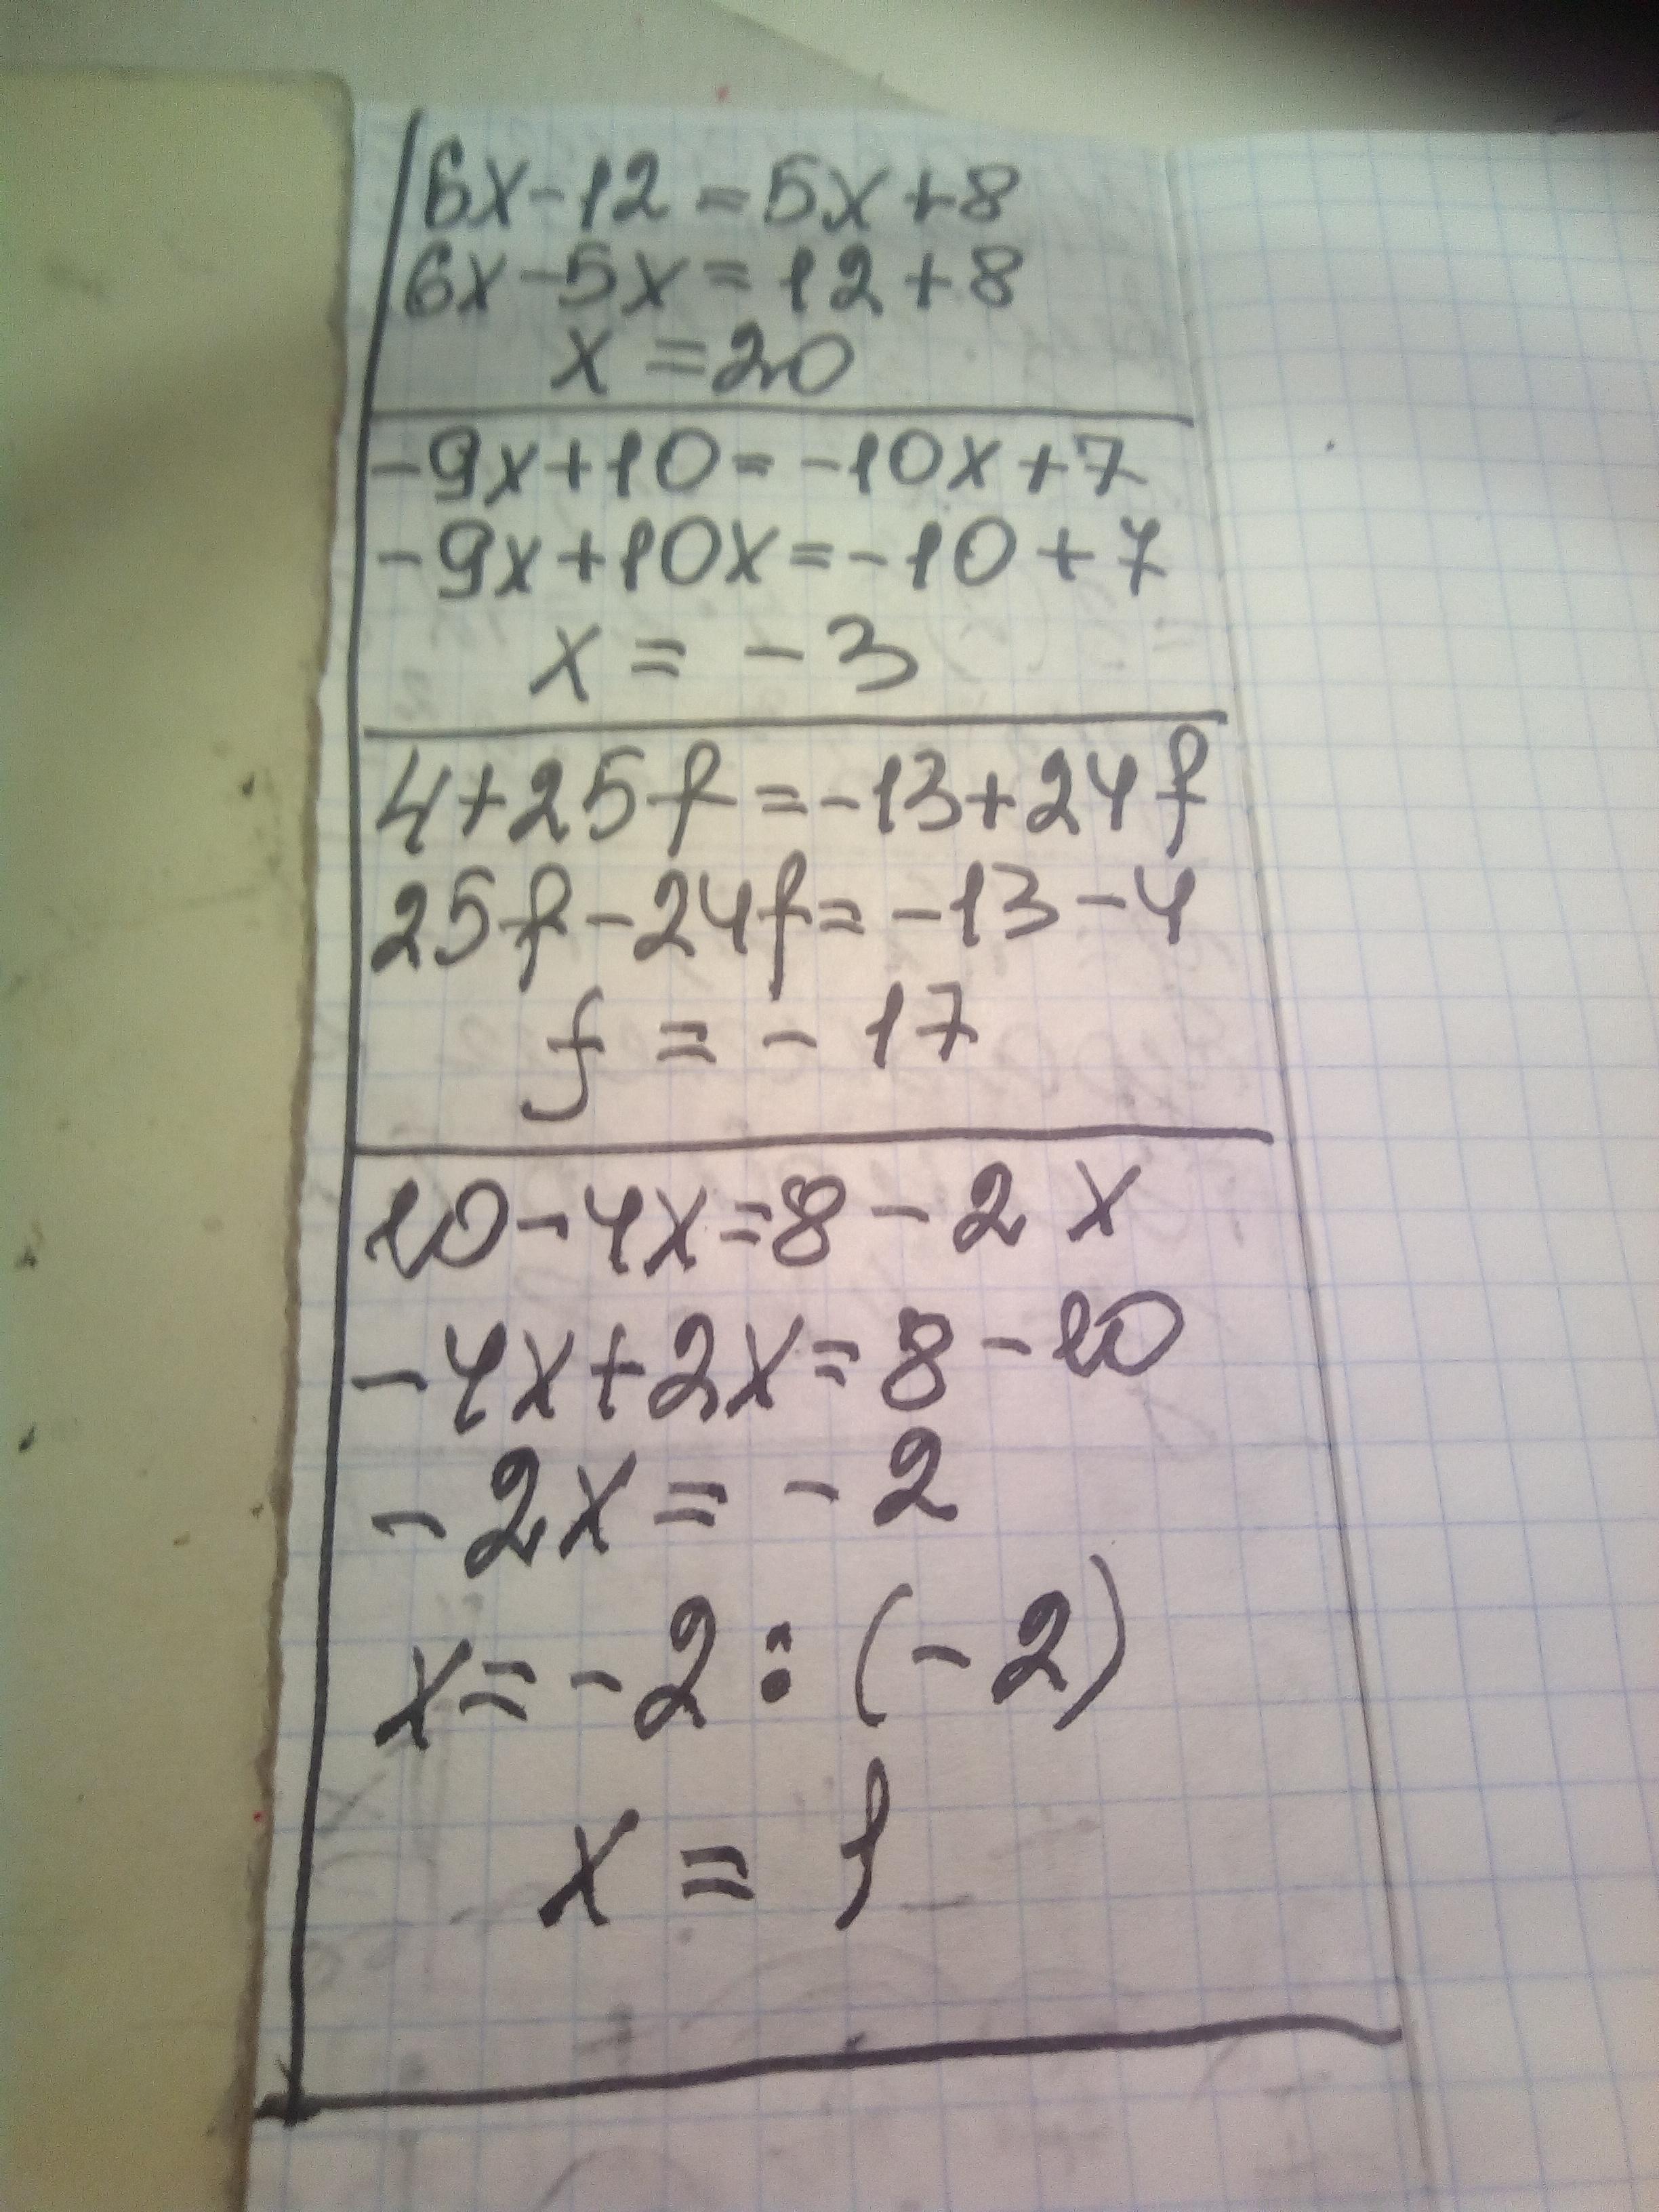 6x-12=5x+8
6x-5x=12+8
x=20
-9x+10=-10x+7
-9x+10x=-10+7
x=-3
4+25f=-13+24f
25f-24f=-13-4
f=-17
10-4x=8-2x
-4x+2x=8-10
-2x=-2
x=-2:(-2)
x=1